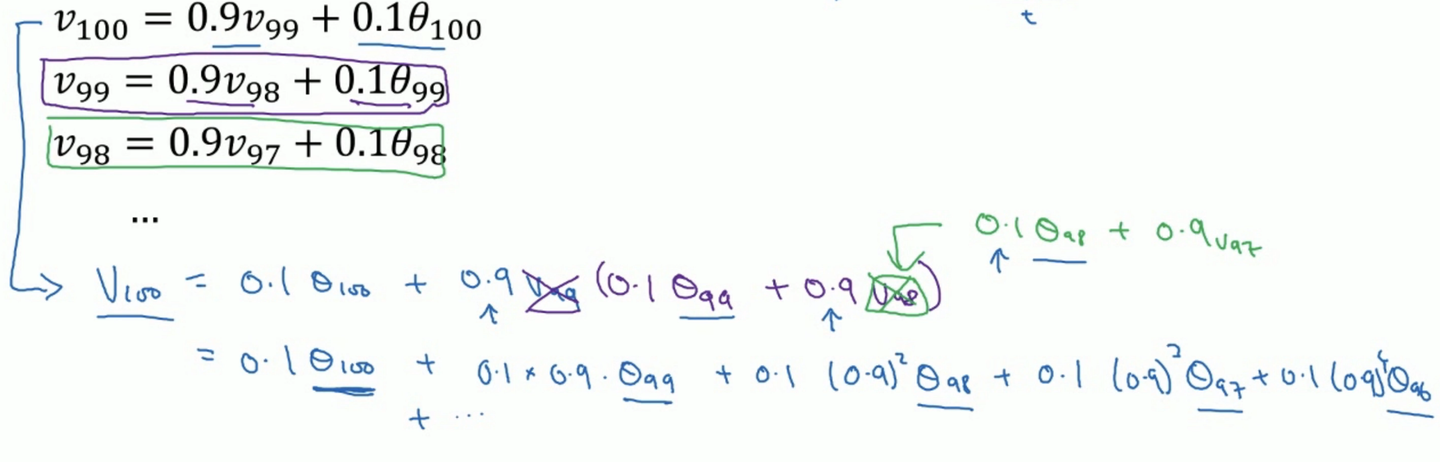 t
v₁₀₀ = 0.9v₉₉ + 0.1θ₁₀₀
v₉₉ = 0.9v₉₈ + 0.1θ₉₉
v₉₈ = 0.9v₉₇ + 0.1θ₉₈
...
0.1 θ₉₈ + 0.9 v₉₇
V₁₀₀ = 0.1 θ₁₀₀ + 0.9 v₉₉ (0.1 θ₉₉ + 0.9 v₉₈)
= 0.1 θ₁₀₀ + 0.1 × 0.9 · θ₉₉ + 0.1 (0.9)² θ₉₈ + 0.1 (0.9)³ θ₉₇ + 0.1 (0.9)⁴ θ₉₆
+ ...